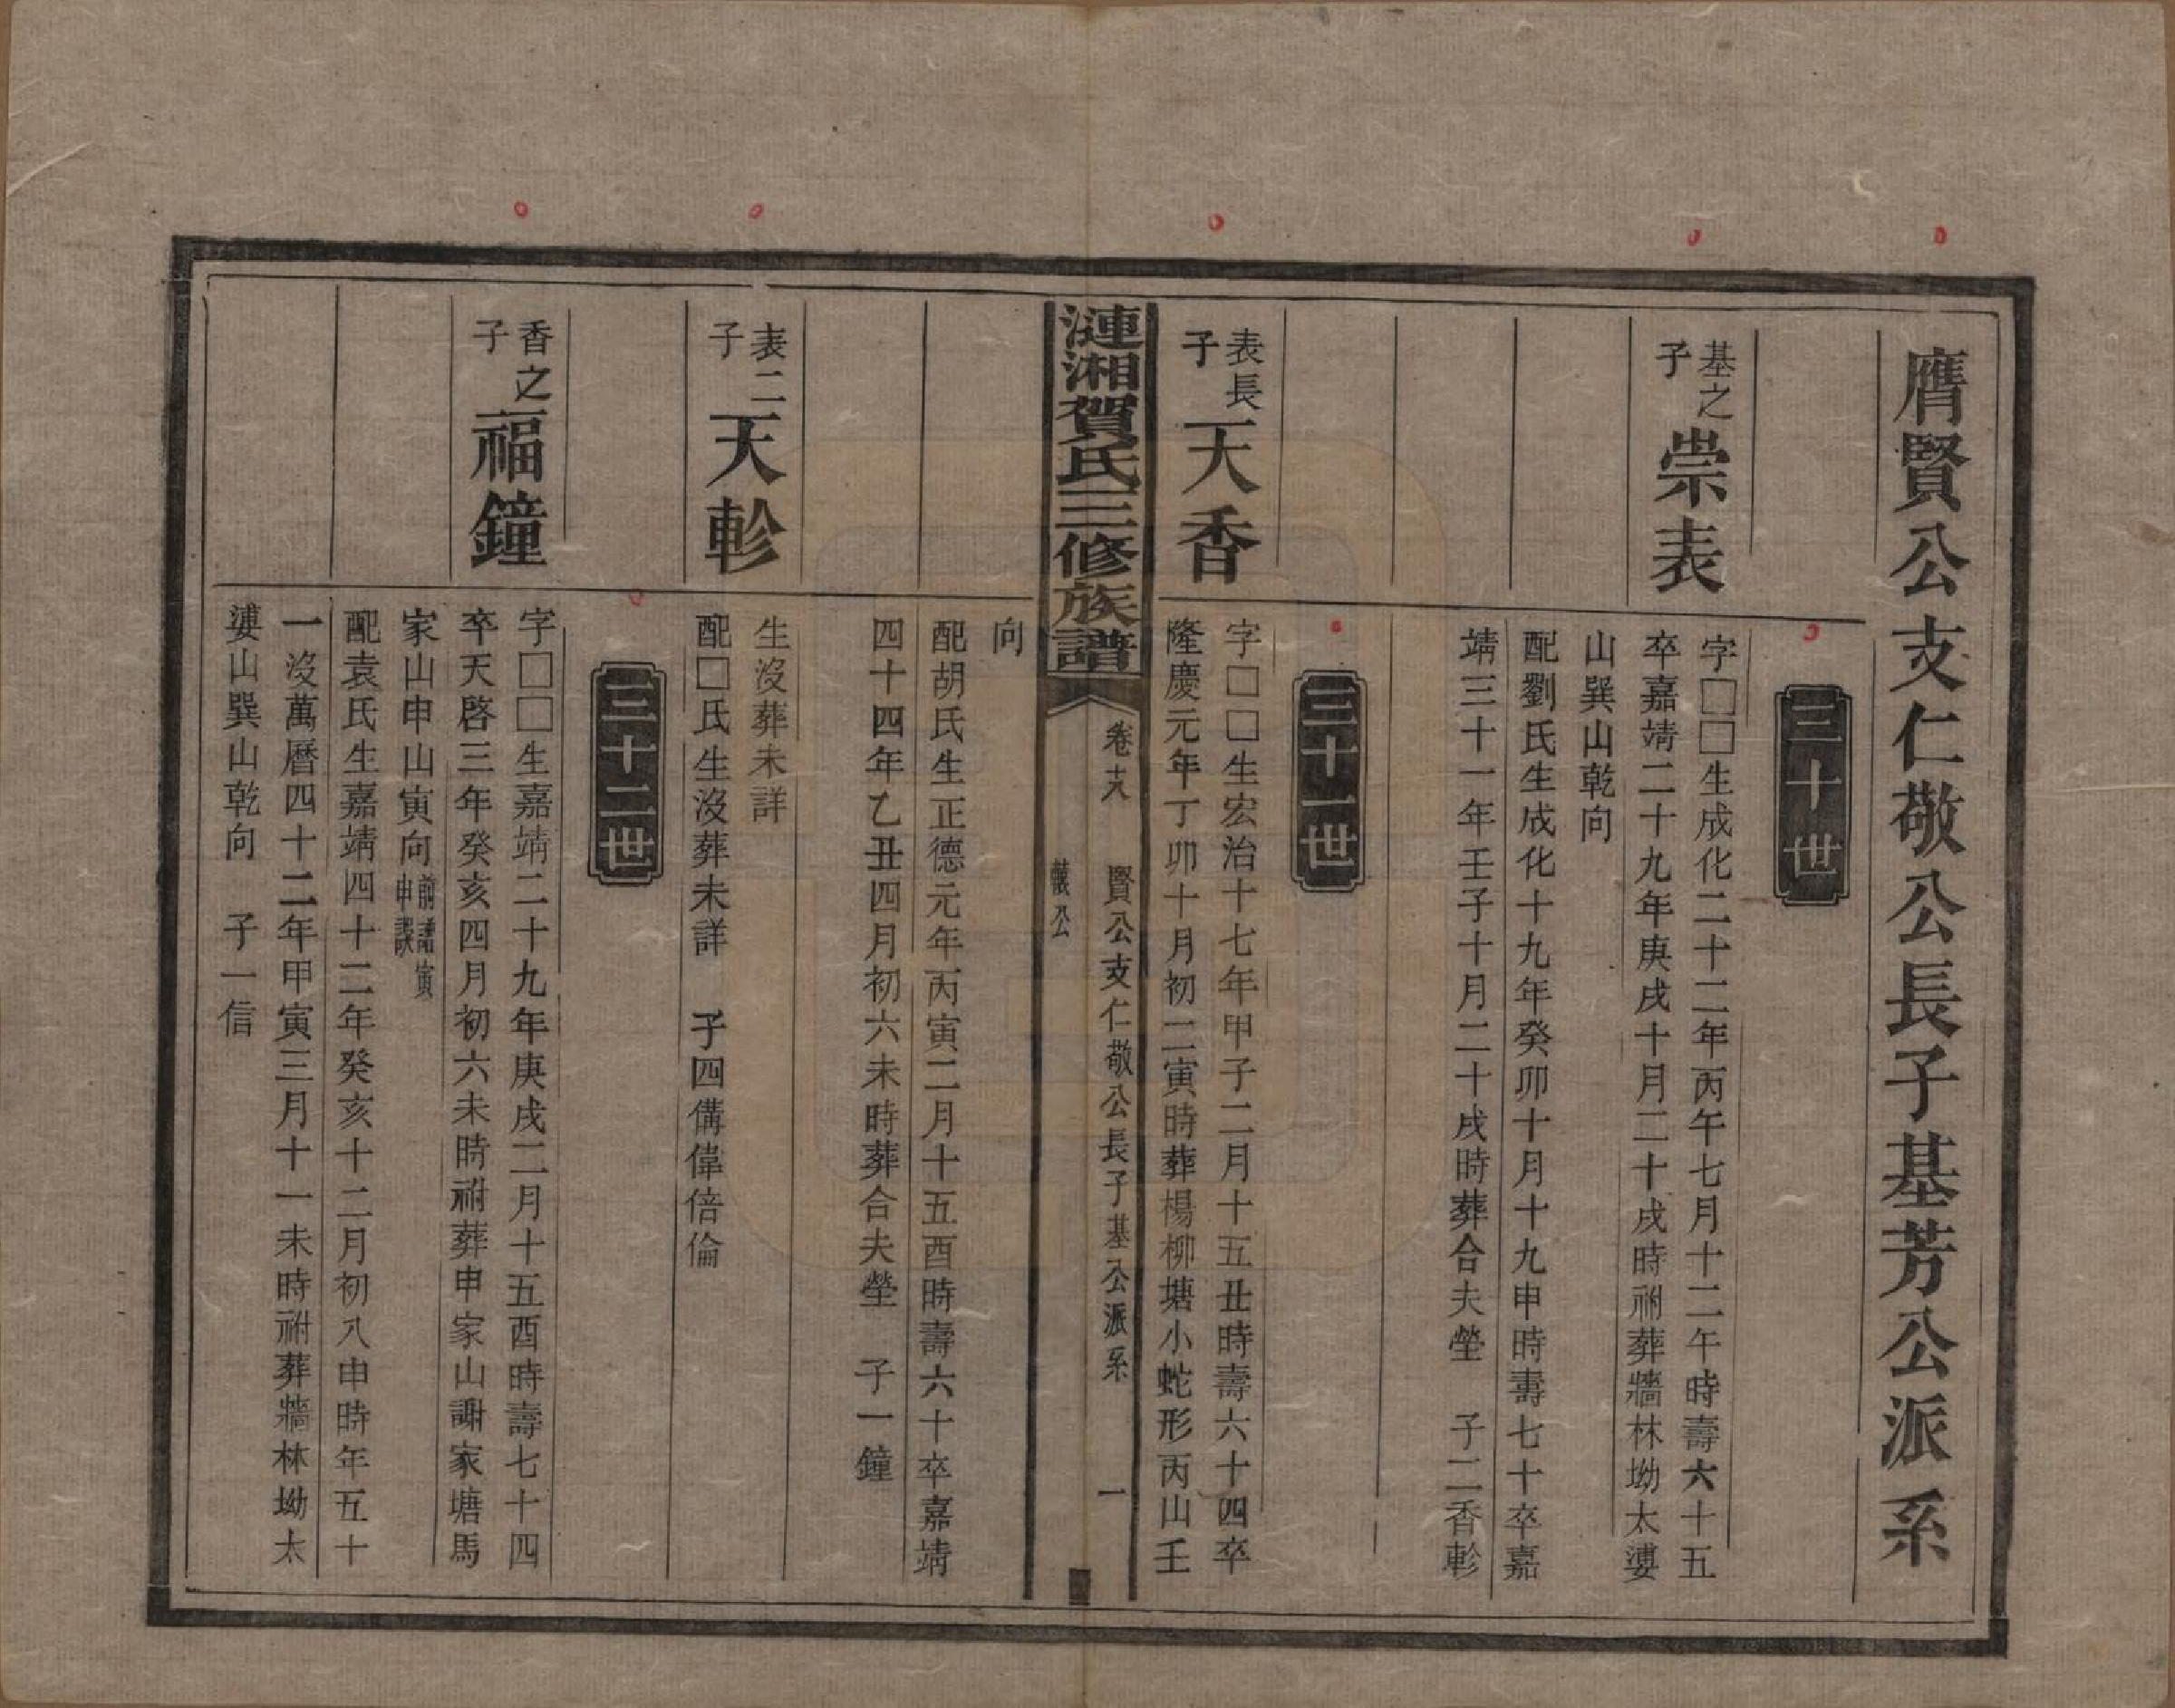 膺賢公支仁敬公長子基芳公派系
三十世
基之子
崇表
字□□生成化二十二年丙午七月十二午時壽六十五
卒嘉靖二十九年庚戌十月二十戌時祔葬牆林坳太婆
山巽山乾向
配劉氏生成化十九年癸卯十月十九申時壽七十卒嘉
靖三十一年壬子十月二十戌時葬合夫塋　子二香軫
三十一世
表長子
天香
字□□生宏治十七年甲子二月十五丑時壽六十四卒
隆慶元年丁卯十月初二寅時葬楊柳塘小蛇形丙山壬
漣湘賀氏三修族譜
卷十八　賢公支仁敬公長子基公派系　一
向
配胡氏生正德元年丙寅二月十五酉時壽六十卒嘉靖
四十四年乙丑四月初六未時葬合夫塋　子一鐘
表二子
天軫
生沒葬未詳
配□氏生沒葬未詳　子四備偉倍倫
三十二世
香之子
福鐘
字□□生嘉靖二十九年庚戌二月十五酉時壽七十四
卒天啓三年癸亥四月初六未時祔葬申家山謝家塘馬
家山申山寅向前譜寅申誤
配袁氏生嘉靖四十二年癸亥十二月初八申時年五十
一沒萬曆四十二年甲寅三月十一未時祔葬牆林坳太
婆山巽山乾向　子一信